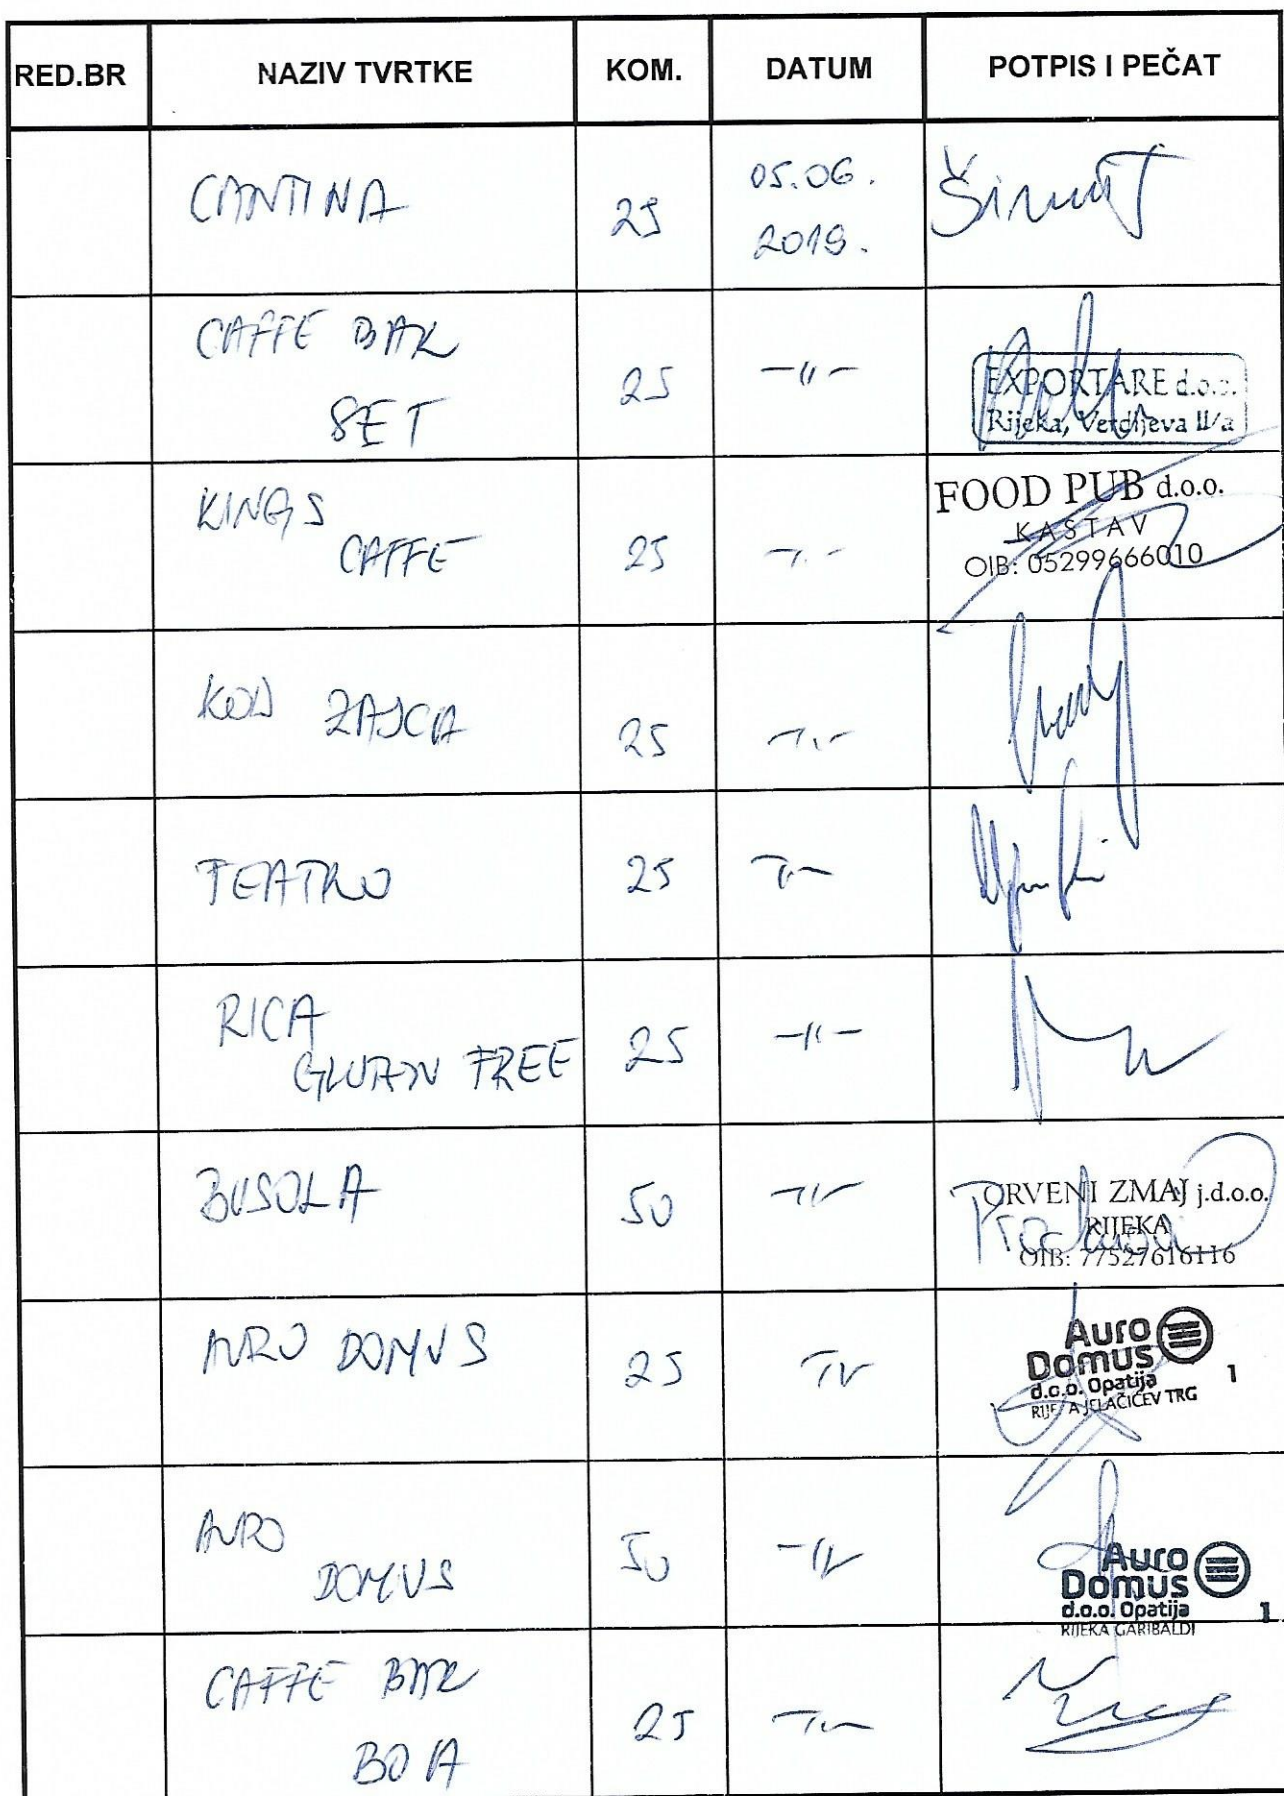 RED.BR NAZIV TVRTKE KOM. DATUM POTPIS I PEČAT
CANTINA 25 05.06.
2019.
CAFFE BAR
SET 25 -11-
EXPORTARE d.o.o.
Rijeka, Verdijeva II/a
KINGS
CAFFE 25 -11-
FOOD PUB d.o.o.
KASTAV
OIB: 05299666010
KOD ZAJCA 25 -11-
TEATRO 25 -11-
RICA
GLUTEN FREE 25 -11-
BUSOLA 50 -11-
CRVENI ZMAJ j.d.o.o.
RIJEKA
OIB: 77527616116
AURO DOMUS 25 -11-
Auro
Domus
d.o.o. Opatija 1
RIJEKA JELAČIĆEV TRG
AURO
DOMUS 50 -11-
Auro
Domus
d.o.o. Opatija 1
RIJEKA GARIBALDI
CAFFE BAR
BOA 25 -11-